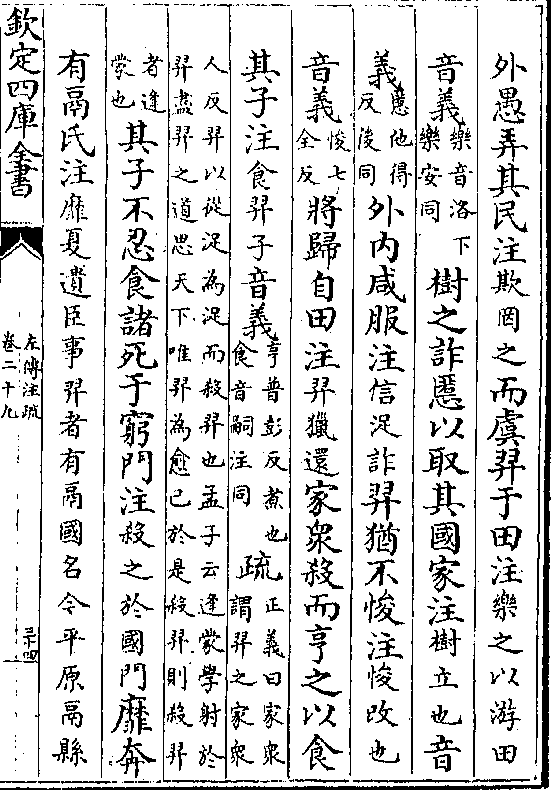 外愚弄其民注欺罔之而虞羿于田注樂之以游田
音義樂音洛下樂安同樹之詐慝以取其國家注樹立也音
義慝他得反浞同外内咸服注信浞詐羿猶不悛注悛改也
音義悛七全反將歸自田注羿獵還家衆殺而亨之以食
其子注食羿子音義亨普彭反煮也食音嗣注同疏正義曰家衆謂羿之家衆
人反羿以從浞為浞而殺羿也孟子云逢蒙學射於羿盡羿之道思天下唯羿為愈已於是殺羿則殺羿
者逢蒙也其子不忍食諸死于窮門注殺之於國門靡奔
有鬲氏注靡夏遺臣事羿者有鬲國名今平原鬲縣
欽定四庫全書
左傳注疏
卷二十九
三十四